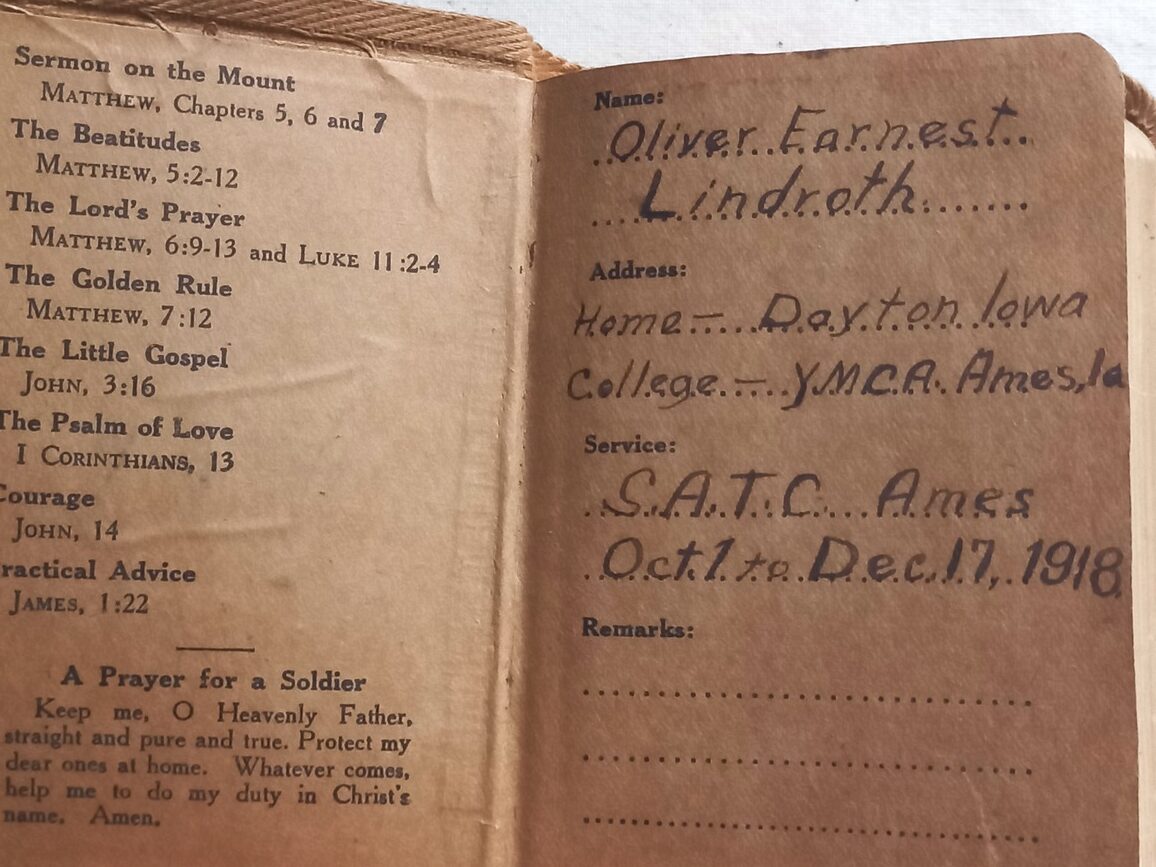 Sermon on the Mount
MATTHEW, Chapters 5, 6 and 7
The Beatitudes
MATTHEW, 5:2-12
The Lord's Prayer
MATTHEW, 6:9-13 and LUKE 11:2-4
The Golden Rule
MATTHEW, 7:12
The Little Gospel
JOHN, 3:16
The Psalm of Love
I CORINTHIANS, 13
Courage
JOHN, 14
ractical Advice
JAMES, 1:22
A Prayer for a Soldier
Keep me, O Heavenly Father,
straight and pure and true. Protect my
dear ones at home. Whatever comes,
help me to do my duty in Christ's
name. Amen.
Name:
Oliver Earnest
Lindroth
Address:
Home — Dayton Iowa
College — Y.M.C.A. Ames, Ia
Service:
S.A.T.C. Ames
Oct. 1 to Dec. 17, 1918
Remarks: